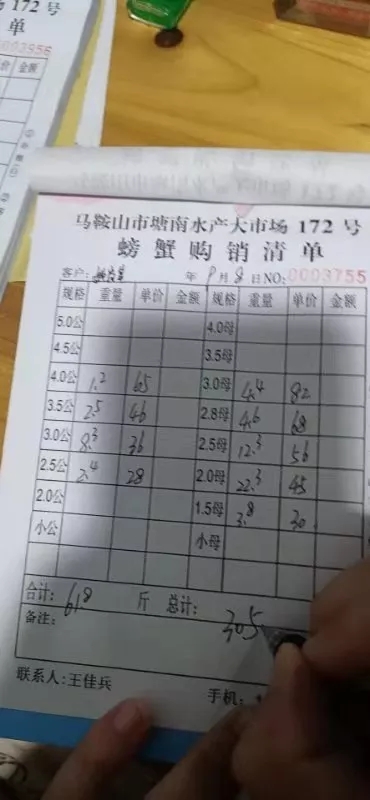 172 号
单
0003556
价 金额
马鞍山市塘南水产大市场 172 号
螃蟹购销清单
客户: 年 9 月 8 日 NO: 0003755
规格 重量 单价 金额 规格 重量 单价 金额
5.0公 4.0母
4.5公 3.5母
4.0公 1.2 65 3.0母 4.4 82
3.5公 2.5 46 2.8母 4.6 68
3.0公 8.3 36 2.5母 12.3 56
2.5公 2.4 28 2.0母 22.3 45
2.0公 1.5母 3.8 30
小公 小母
合计: 61.8 斤 总计: 305
备注:
联系人: 王佳兵 手机: